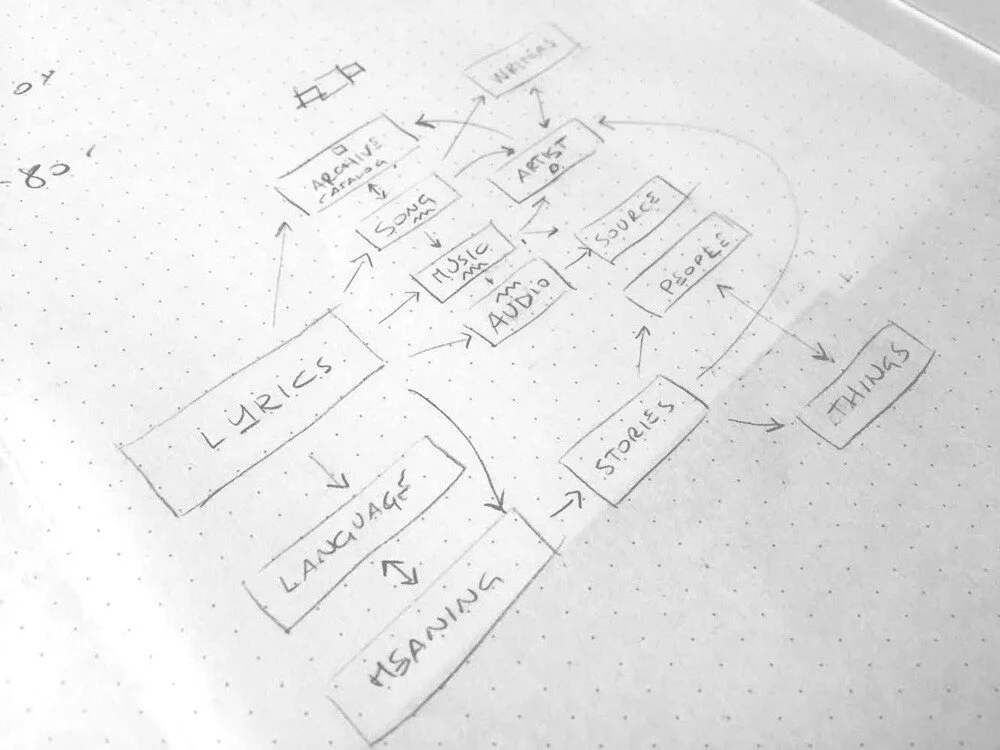 WRITINGS
ARCHIVE
CATALOG
ARTIST
SONG
SOURCE
MUSIC
PEOPLE
AUDIO
LYRICS
THINGS
STORIES
LANGUAGE
MEANING